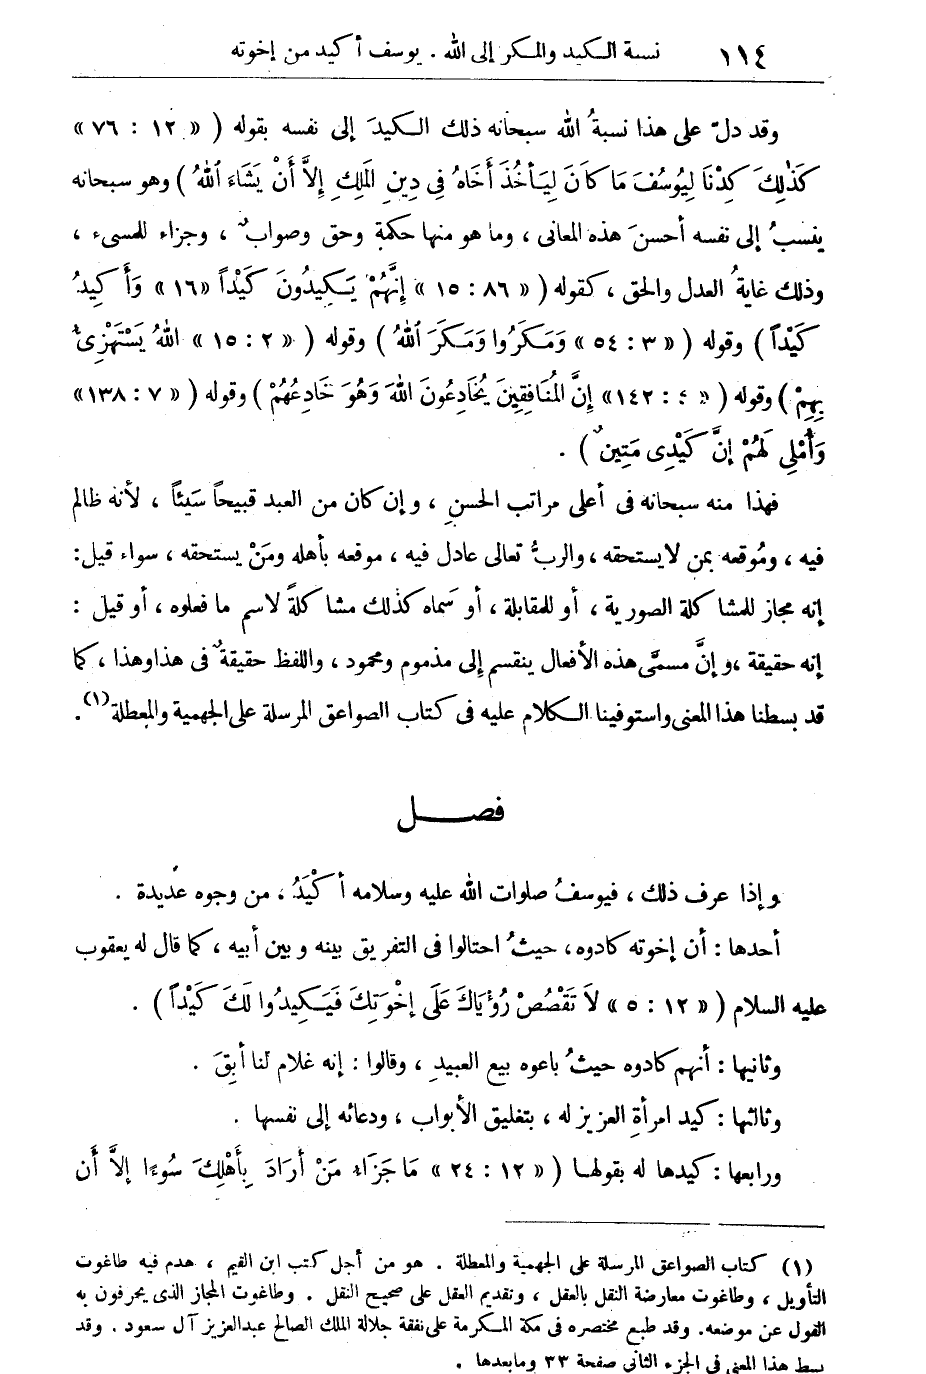 ١١٤ نسبة الكيد والمكر إلى الله . يوسف أكيد من إخوته
وقد دلّ على هذا نسبةُ الله سبحانه ذلك الكيدَ إلى نفسه بقوله ( « ١٢ : ٧٦ »
كَذٰلِكَ كِدْنَا لِيُوسُفَ مَا كَانَ لِيَأْخُذَ أَخَاهُ فِي دِينِ المَلِكِ إِلاَّ أَنْ يَشَاءَ ٱللهُ ) وهو سبحانه
ينسبُ إلى نفسه أحسنَ هذه المعانى ، وما هو منها حكمةٍ وحق وصوابٌ ، وجزاء للمسىء ،
وذلك غايةُ العدل والحق ، كقوله ( « ٨٦ : ١٥ » إِنَّهُمْ يَكِيدُونَ كَيْداً «١٦» وَأَكِيدُ
كَيْداً ) وقوله ( « ٣ : ٥٤ » وَمَكَرُوا وَمَكَرَ ٱللهُ ) وقوله ( « ٢ : ١٥ » اللهُ يَسْتَهْزِئُ
بِهِمْ ) وقوله ( « ٤ : ١٤٢ » إِنَّ المُنَافِقِينَ يُخَادِعُونَ اللهَ وَهُوَ خَادِعُهُمْ ) وقوله ( « ٧ : ١٣٨ »
وَأُمْلِى لَهُمْ إِنَّ كَيْدِى مَتِينٌ ) .
فهذا منه سبحانه فى أعلى مراتب الحسنِ ، وإن كان من العبد قبيحاً سَيِّئاً ، لأنه ظالم
فيه ، ومُوقعه بمن لا يستحقه ، والربُّ تعالى عادل فيه ، موقعه بأهله ومَنْ يستحقه ، سواء قيل :
إنه مجاز للمشاكلة الصورية ، أو للمقابلة ، أو سَماه كذلك مشاكلةً لاسم ما فعلوه ، أو قيل :
إنه حقيقة ، وإنَّ مسمَّى هذه الأفعال ينقسم إلى مذموم ومحمود ، واللفظ حقيقةٌ فى هذا وهذا ، كما
قد بسطنا هذا المعنى واستوفينا الكلام عليه فى كتاب الصواعق المرسلة على الجهمية والمعطلة (١) .
فصل
وإذا عرف ذلك ، فيوسفُ صلوات الله عليه وسلامه أكْيَدُ ، من وجوه عديدة .
أحدها : أن إخوته كادوه ، حيثُ احتالوا فى التفريق بينه وبين أبيه ، كما قال له يعقوب
عليه السلام ( « ١٢ : ٥ » لاَ تَقْصُصْ رُؤْيَاكَ عَلَى إِخْوَتِكَ فَيَكِيدُوا لَكَ كَيْداً ) .
وثانيها : أنهم كادوه حيثُ باعوه بيع العبيدِ ، وقالوا : إنه غلام لنا أبِقَ .
وثالثها : كيد امرأةِ العزيز له ، بتغليق الأبواب ، ودعائه إلى نفسها .
ورابعها : كيدها له بقولها ( « ١٢ : ٢٤ » مَا جَزَاءُ مَنْ أَرَادَ بِأَهْلِكَ سُوءًا إلاَّ أَن
(١) كتاب الصواعق المرسلة على الجهمية والمعطلة . هو من أجل كتب ابن القيم ، هدم فيه طاغوت
التأويل ، وطاغوت معارضة النقل بالعقل ، وتقديم العقل على صحيح النقل . وطاغوت المجاز الذى يحرفون به
القول عن موضعه . وقد طبع مختصره فى مكة المكرمة على نفقة جلالة الملك الصالح عبدالعزيز آل سعود . وقد
بسط هذا المعنى فى الجزء الثانى صفحة ٣٣ وما بعدها .